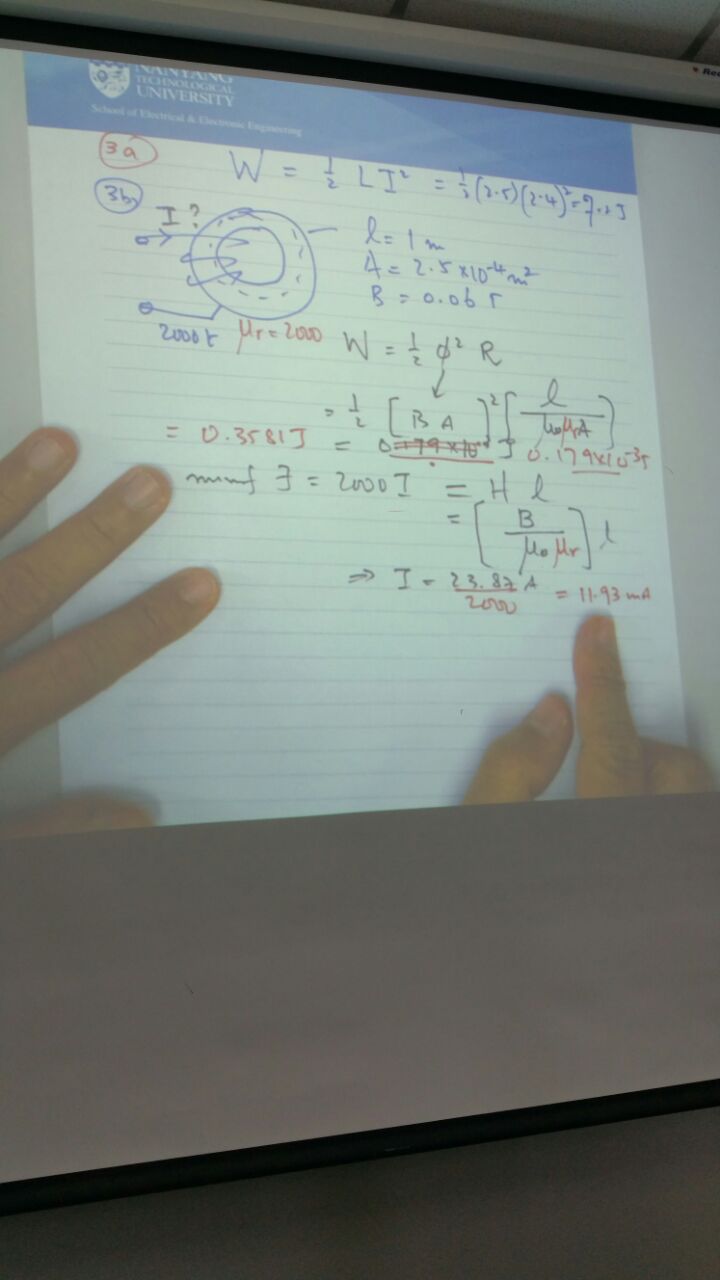 NANYANG
TECHNOLOGICAL
UNIVERSITY
School of Electrical & Electronic Engineering
3a W = ½ L I² = ½ (2.5)(2.4)² = 7.2 J
3b
I ?
l = 1 m
A = 2.5 × 10⁻⁴ m²
B = 0.06 T
2000t μr = 2000
W = ½ φ² R
= ½ [B A]² [l / μ₀μrA]
= 0.3581 J = 0.179×10 J 0.179×10⁻³J
mmf F = 2000 I = H l
= [B / μ₀ μr] l
⇒ I = 23.87 A / 2000 = 11.93 mA